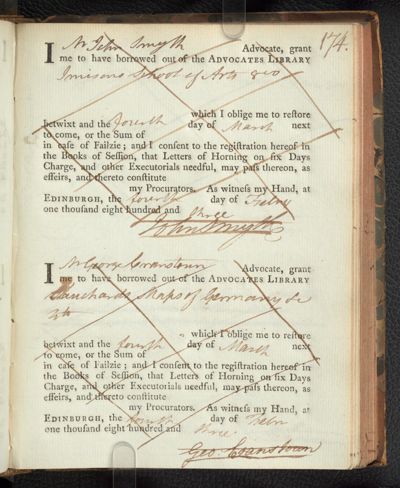 174.
I Mr John Smyth Advocate, grant
me to have borrowed out of the ADVOCATES LIBRARY
Imisons School of Arts 8vo
which I oblige me to reſtore
betwixt and the fourth day of March next
to come, or the Sum of
in caſe of Failzie; and I conſent to the regiſtration hereof in
the Books of Seſſion, that Letters of Horning on ſix Days
Charge, and other Executorials needful, may paſs thereon, as
effeirs, and thereto conſtitute
my Procurators. As witneſs my Hand, at
EDINBURGH, the fourth day of Febry
one thouſand eight hundred and three
John Smyth
I Mr George Cranstoun Advocate, grant
me to have borrowed out of the ADVOCATES LIBRARY
Chauchards Maps of Germany &c
which I oblige me to reſtore
betwixt and the fourth day of March next
to come, or the Sum of
in caſe of Failzie; and I conſent to the regiſtration hereof in
the Books of Seſſion, that Letters of Horning on ſix Days
Charge, and other Executorials needful, may paſs thereon, as
effeirs, and thereto conſtitute
my Procurators. As witneſs my Hand, at
EDINBURGH, the fourth day of Febry
one thouſand eight hundred and three
Geo. Cranstoun